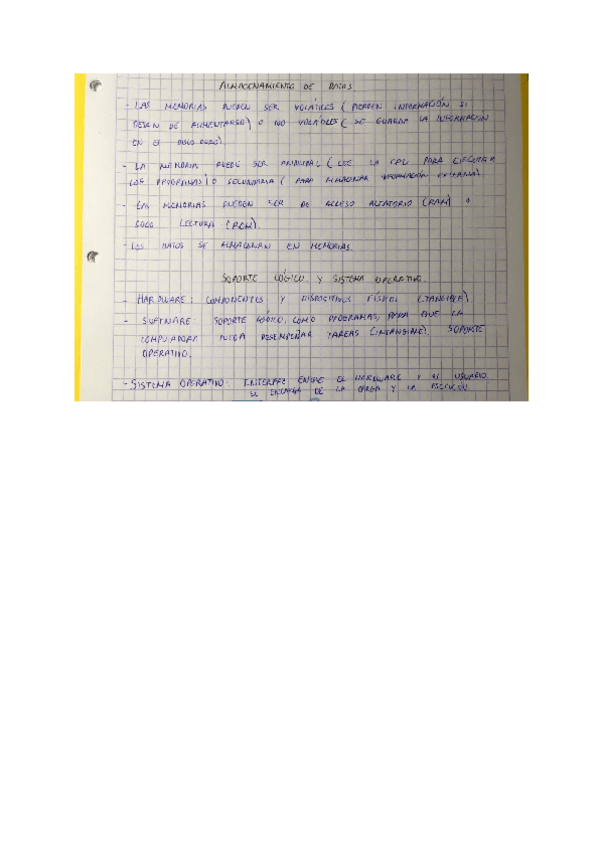 ALMACENAMIENTO DE DATOS
- LAS MEMORIAS PUEDEN SER VOLÁTILES ( PIERDEN INFORMACIÓN SI
DEJAN DE ALIMENTARSE) O NO VOLÁTILES ( SE GUARDA LA INFORMACIÓN
EN EL DISCO DURO).
- LA MEMORIA PUEDE SER PRINCIPAL ( LEE LA CPU PARA EJECUTAR
LOS PROGRAMAS) O SECUNDARIA ( PARA ALMACENAR INFORMACIÓN EXTERNA)
- LAS MEMORIAS PUEDEN SER DE ACCESO ALEATORIO (RAM) O
SOLO LECTURA (ROM).
- LOS DATOS SE ALMACENAN EN MEMORIAS.
SOPORTE LÓGICO Y SISTEMA OPERATIVO.
- HARDWARE: COMPONENTES Y DISPOSITIVOS FÍSICOS (TANGIBLE)
- SOFTWARE: SOPORTE LÓGICO, COMO PROGRAMAS, PARA QUE LA
COMPUTADORA PUEDA DESEMPEÑAR TAREAS (INTANGIBLE). SOPORTE
OPERATIVO.
- SISTEMA OPERATIVO: INTERFAZ ENTRE EL HARDWARE Y EL USUARIO.
SE ENCARGA DE LA CARGA Y LA